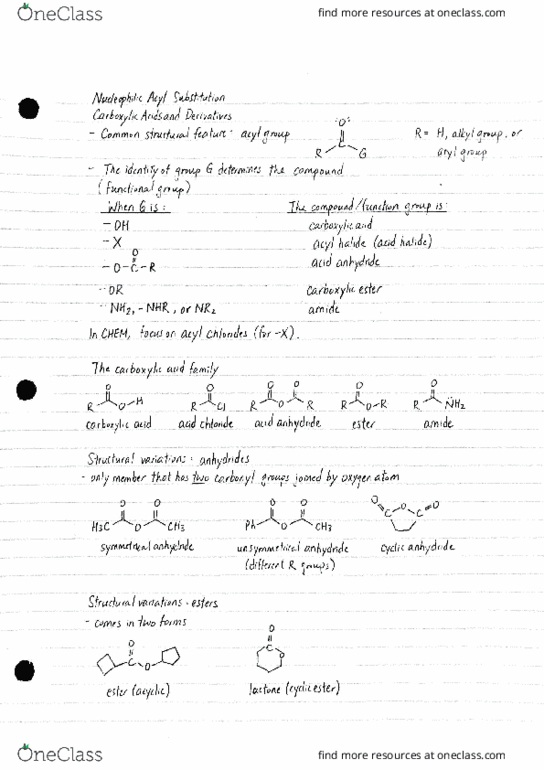 OneClass
find more resources at oneclass.com
Nucleophilic Acyl Substitution
Carboxylic Acids and Derivatives
- Common structural feature - acyl group
:O:
R C G
R = H, alkyl group, or
aryl group
- The identity of group G determines the compound
(functional group)
When G is: The compound/function group is:
- OH carboxylic acid
- X acyl halide (acid halide)
O
- O - C - R acid anhydride
- OR carboxylic ester
- NH2, - NHR, or NR2 amide
In CHEM, focus on acyl chlorides (for -X).
The carboxylic acid family
O O O O O O
R O H R Cl R O R R O-R R NH2
carboxylic acid acid chloride acid anhydride ester amide
Structural variations - anhydrides
- only member that has two carbonyl groups joined by oxygen atom
O O O O O C O C O
H3C O CH3 Ph O CH3
symmetrical anhydride unsymmetrical anhydride cyclic anhydride
(different R groups)
Structural variations - esters
- comes in two forms
O O
C O C O
ester (acyclic) lactone (cyclic ester)
OneClass
find more resources at oneclass.com